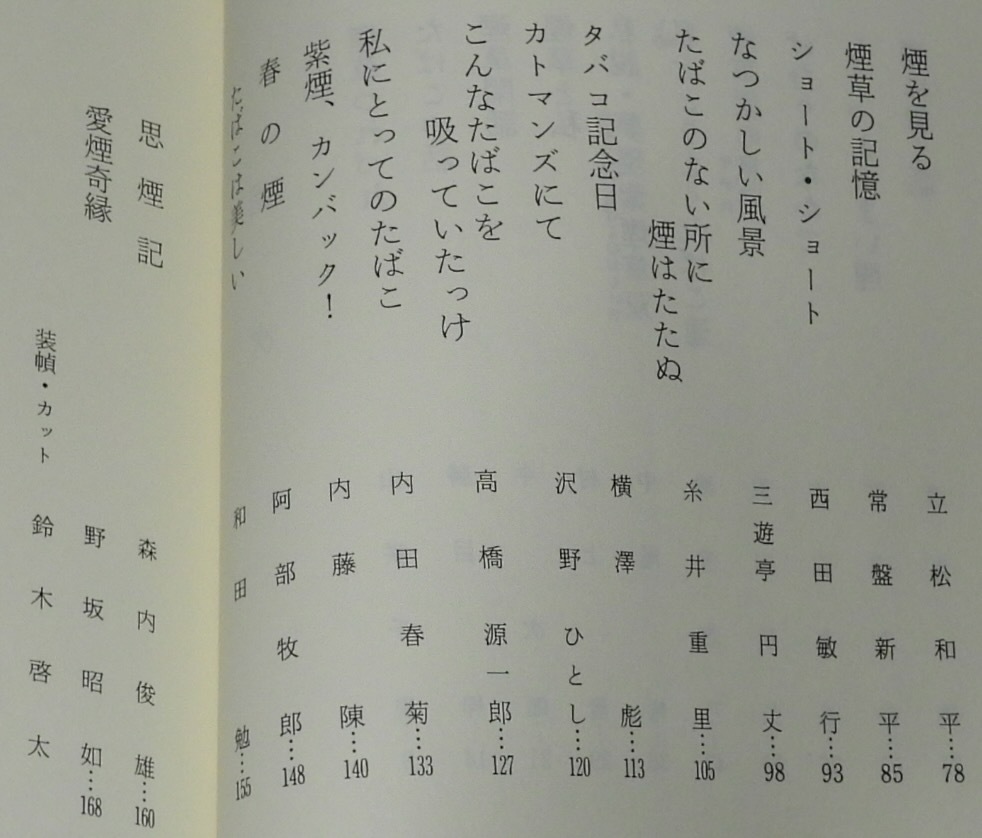 煙を見る　立松和平…78
煙草の記憶　常盤新平…85
ショート・ショート　西田敏行…93
なつかしい風景　三遊亭円丈…98
たばこのない所に
煙はたたぬ　糸井重里…105
タバコ記念日　横澤彪…113
カトマンズにて　沢野ひとし…120
こんなたばこを
吸っていたっけ　高橋源一郎…127
私にとってのたばこ　内田春菊…133
紫煙、カンバック！　内藤陳…140
春の煙　阿部牧郎…148
たばこは美しい　和田勉…155
思煙記　森内俊雄…160
愛煙奇縁　野坂昭如…168
装幀・カット　鈴木啓太